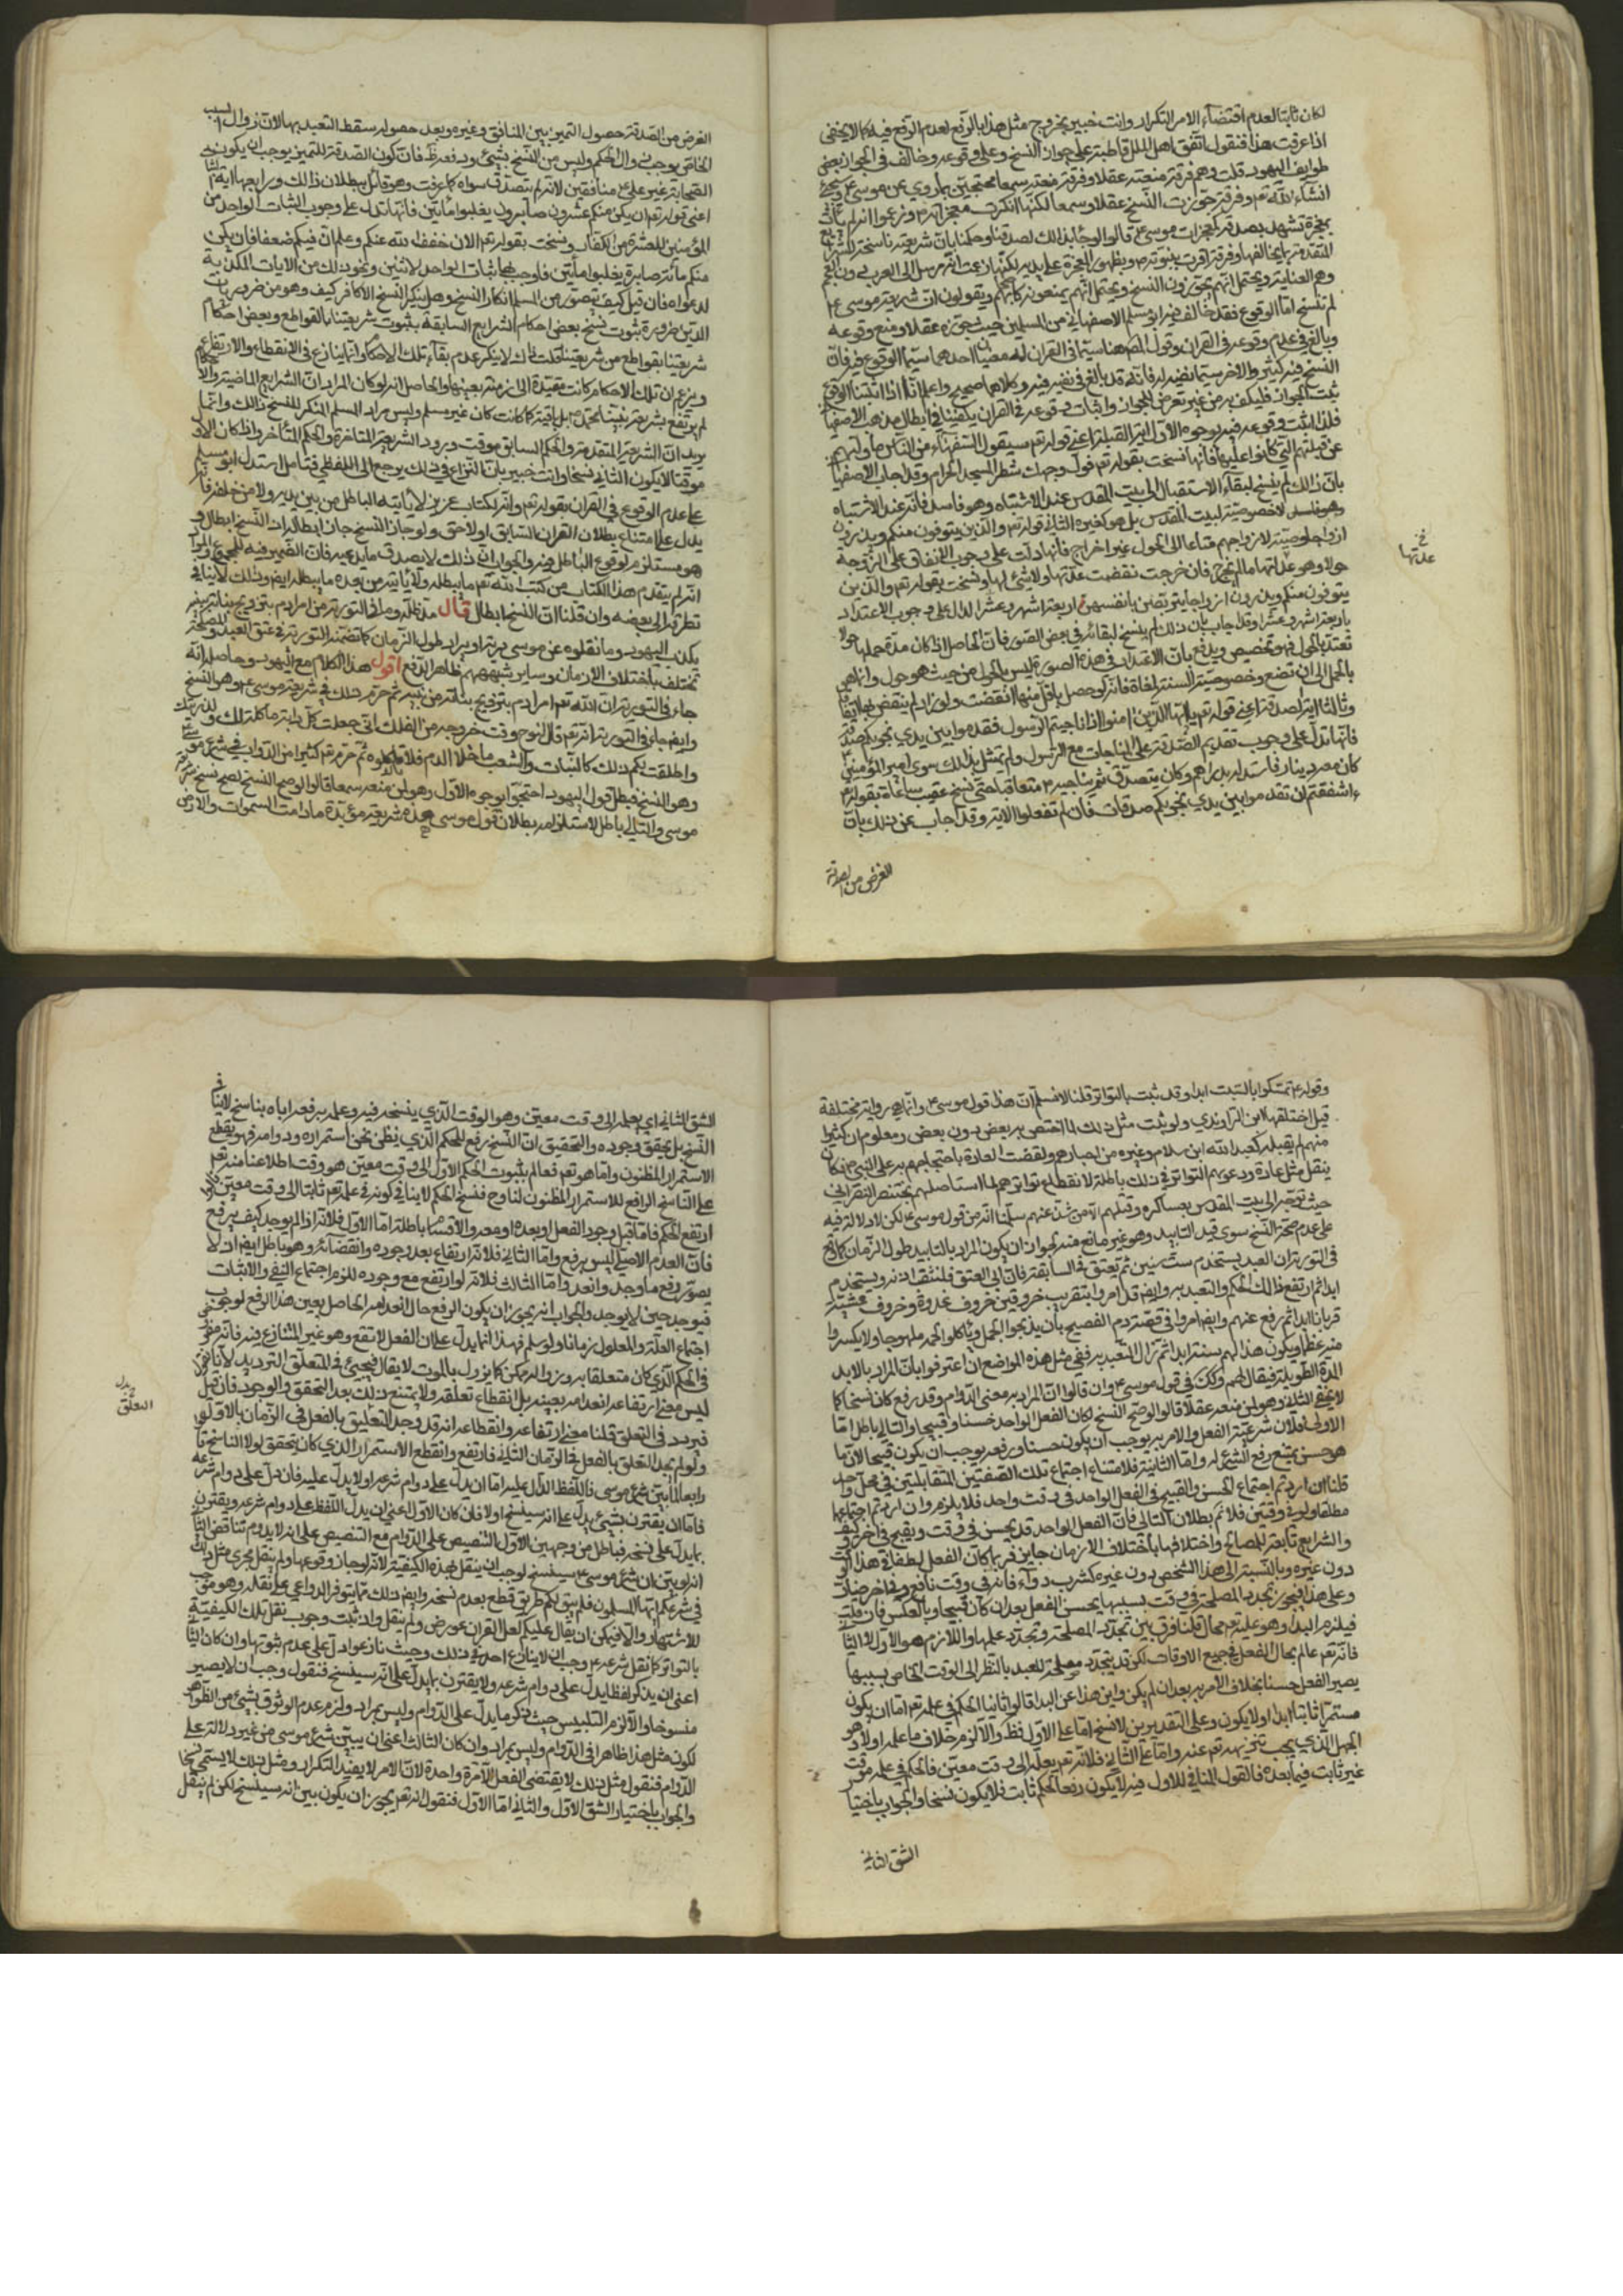 لكان ثابتا لعدم اقتضاء الامر التكرار وانت خبير بخروج مثل هذا بالرفع لعدم الرفع فيه كما لا يخفى
اذا عرفت هذا فنقول اتفق اهل الملل قاطبة على جواز النسخ وعلى وقوعه وخالف في الجواز بعض
طوايف اليهود قلت وهم فرقة منعته عقلا وفرقة منعته سمعا محتجين بما روي عن موسى ع وسيجئ
انشاء الله تع وفرقة جوزت النسخ عقلا وسمعا لكنها انكرت معجزاته وزعموا انه لم يات
بمعجزة تشهد بصدقه كمعجزات موسى ع قالوا لو جاء بذلك لصدقناه وحكمنا بان شريعته ناسخة للشرايع
وهم العنانية ويحتمل انهم يجوزون النسخ ويحتمل انهم يمنعونه ويقولون ان شريعة موسى ع
لم تنسخ اما الوقوع فقد خالف فيه ابو مسلم الاصفهاني من المسلمين حيث جوزه عقلا ومنع وقوعه
وبالغ في عدم وقوعه في القران وقول المص هنا سيما في القران له معنيان احدهما سيما الوقوع فيه فان
النسخ فيه كثير والاخر سيما نفيه له فانه قد بالغ في نفيه فيه وكلاهما صحيح واعلم انا اذا اثبتنا الوقوع
ثبت الجواز فليكف به من غير تعرض للجواز واثبات وقوعه في القران يكفينا في ابطال مذهب الاصفهاني
فلذا اثبت وقوعه فيه بوجوه الاول اية القبلة اعني قوله تع سيقول السفهاء من الناس ما ولهم
عن قبلتهم التي كانوا عليها فانها نسخت بقوله تع فول وجهك شطر المسجد الحرام وقد اجاب الاصفهاني
بان ذلك لم ينسخ لبقاء الاستقبال الى بيت المقدس عند الاشتباه وهو فاسد فانه عند الاشتباه
لا خصوصية لبيت المقدس بل هو كغيره الثاني قوله تع والذين يتوفون منكم ويذرون
ازواجا وصية لازواجهم متاعا الى الحول غير اخراج فانها دلت على وجوب الانفاق على الزوجة
حولا وهو عدتها ما لم تخرج فان خرجت نقضت عدتها ولا شئ لها ونسخت بقوله تع والذين
يتوفون منكم ويذرون ازواجا يتربصن بانفسهن اربعة اشهر وعشرا الدال على وجوب الاعتداد
باربعة اشهر وعشرا وقد اجاب بان ذلك لم ينسخ لبقائه في بعض الصور فان الحامل اذا كان مدة حملها حولا
تعتد بالحول فهو تخصيص ويدفع بان الاعتداد في هذه الصورة ليس بالحول من حيث هو حول وانما هو
بالحمل الى ان تضع وخصوصية السنة لغاة فانه لو حصل باقل منها انقضت ولو زاد لم ينقض بها اتفاقا
وثالثا اية الصدقة اعني قوله تع يا ايها الذين امنوا اذا ناجيتم الرسول فقدموا بين يدي نجويكم صدقة
فانها تدل على وجوب تقديم الصدقة على المناجات مع الرسول ولم يتمثل بذلك سوى امير المؤمنين ع
كان معه دينار فاستبدله بدراهم وكان يتصدق ثم يناجيه حتى نسخ بقوله تع
ءاشفقتم ان تقدموا بين يدي نجويكم صدقات فان لم تفعلوا الاية وقد اجاب عن ذلك بان
الغرض من الصدقة
خ
عدتها
الغرض من الصدقة حصول التميز بين المنافق وغيره وبعد حصوله سقط التعبد بها لان زوال السبب
الخاص يوجب زوال الحكم وليس من النسخ بشئ ودفعه ظ فان كون الصدقة للتميز يوجب ان يكون
الصحابة غير علي ع منافقين لانه لم يتصدق سواه كما عرفت وهو قائل ببطلان ذلك ورابعها اية الثبات
اعني قوله تع ان يكن منكم عشرون صابرون يغلبوا مائتين فانها تدل على وجوب الثبات الواحد من
المؤمنين للعشرة من الكفار ونسخت بقوله تع الان خفف الله عنكم وعلم ان فيكم ضعفا فان يكن
منكم مائة صابرة يغلبوا مائتين فاوجب بها ثبات الواحد لاثنين ونحو ذلك من الايات المكذبة
لدعواه فان قيل كيف يتصور من المسلم انكار النسخ وهل ينكر النسخ الا كافر كيف وهو من ضروريات
الدين ضرورة ثبوت نسخ بعض احكام الشرايع السابقة بثبوت شريعتنا بالقواطع وبعض احكام
شريعتنا بقواطع من شريعتنا قلت ذلك لا ينكر عدم بقاء تلك الاحكام وانما ينازع في الانقطاع والارتفاع
ويزعم ان تلك الاحكام كانت مقيدة الى زمن شريعتنا والحاصل انه لو كان المراد ان الشرايع الماضية والاحكام
لم يرتفع بشريعة نبينا محمد ص بل باقية كما كانت كان غير مسلم وليس مراد المسلم المنكر للنسخ ذلك وانما
يريد ان الشريعة المتقدمة والحكم السابق موقت بورود الشريعة المتاخرة والحكم المتاخر واذا كان الاول
موقتا لا يكون الثاني نسخا وانت خبير بان النزاع في ذلك يرجع الى اللفظي فتامل استدل ابو مسلم
على عدم الوقوع في القران بقوله تع وانه لكتاب عزيز لا ياتيه الباطل من بين يديه ولا من خلفه فانه
يدل على امتناع بطلان القران السابق او لاحق ولو جاز النسخ جاز ابطاله لان النسخ ابطال
هو مستلزم لوقوع الباطل فيه والجواب ان ذلك لا يصدق ما يدعيه فان الضمير فيه للمجموع والمراد
انه لم يتقدم هذا الكتاب من كتب الله تع ما يبطله ولا ياتيه من بعده ما يبطله ايضا وذلك لا ينافي
تطرقه الى بعضه وان قلنا ان النسخ ابطال قال مد ظله وما في التورية من امر ادم بتزويج بناته من بنيه
يكذب اليهود وما نقلوه عن موسى ع فرية او يراد طول الزمان كما تضمنته التورية في عتق العبد والمصلحة
تختلف باختلاف الازمان وساير شبههم ظاهر الدفع اقول هذا الكلام مع اليهود وحاصله انه
جاء في التورية ان الله تع امر ادم بتزويج بناته من بنيه ثم حرم ذلك في شريعة موسى ع وهو النسخ
وايضا جاء في التورية انه تع قال لنوح وقت خروجه من الفلك اني جعلت كل دابة ماكلة لك ولذريتك
واطلقت لكم ذلك كالنبات والشعب ما خلا الدم فلا تاكلوه ثم حرم تع كثيرا من الدواب في شرع موسى ع
وهو النسخ فبطل قول اليهود احتجوا بوجوه الاول وهو لمن منعه سمعا قالوا لو صح النسخ لصح نسخ شريعة
موسى والتالي باطل لاستلزامه بطلان قول موسى هذه شريعة مؤبدة مادامت السموات والارض
وقوله ع تمسكوا بالسبت ابدا وقد ثبت بالتواتر قلنا لا نسلم ان هذا قول موسى ع وانما هي رواية مختلفة
قيل اختلقها لابن الراوندي ولو ثبت مثل ذلك لما اختص به بعض دون بعض ومعلوم ان كثيرا
منهم لم يقبله كعبد الله ابن سلام وغيره من احبارهم ولقضت العادة باحتجاجهم به على النبي ص فكان
ينقل مثل عادة ودعويهم التواتر في ذلك باطلة لانقطاع تواترهم لما استاصلهم بختنصر النصراني
حيث توجه الى بيت المقدس بعساكره وقتلهم الا من شذ عنهم سلمنا انه من قول موسى ع لكن لا دلالة فيه
على عدم صحة النسخ سوى قيد التابيد وهو غير مانع منه لجواز ان يكون المراد بالتابيد طول الزمان كما وقع
في التورية ان العبد يستخدم ست سنين ثم يعتق في السابعة فان ابى العتق فلتثقب اذنه ويستخدم
ابدا ثم ارتفع ذلك الحكم والتعبد به وايضا قد امروا بتقريب خروفين خروف غدوة وخروف عشية
قربانا ابدا ثم رفع عنهم وايضا امروا في قصة دم الفصيح بان يذبحوا الحمل وياكلوا لحمه ملهوجا ولا يكسروا
منه عظما ويكون هذا لهم سنة ابدا ثم زال التعبد به ففي مثل هذه المواضع ان اعترفوا بان المراد بالابد
المدة الطويلة فيقال لهم وكك في قول موسى ع وان قالوا ان المراد به معنى الدوام وقد رفع كان نسخا كما
لا يخفى الثاني وهو لمن منعه عقلا قالوا لو صح النسخ لكان الفعل الواحد حسنا وقبيحا والتالي باطل اما
الاولى فلان شرعية الفعل والامر به يوجب ان يكون حسنا ورفعه يوجب ان يكون قبيحا لان ما
هو حسن يمتنع رفع الشرع له واما الثانية فلامتناع اجتماع تلك الصفتين المتقابلتين في محل واحد
قلنا ان اردتم اجتماع الحسن والقبيح في الفعل الواحد في وقت واحد فلا يلزم وان اردتم اجتماعهما
مطلقا ولو في وقتين فلا نم بطلان التالي فان الفعل الواحد قد يحسن في وقت ويقبح في اخر كيف
والشرايع تابعة للمصالح واختلافها باختلاف الازمان جايز فربما كان الفعل لطفا في هذا الوقت
دون غيره وبالنسبة الى هذا الشخص دون غيره كشرب دواء فانه في وقت نافع وفي اخر ضار
وعلى هذا فيجئ تجدد المصلحة في وقت بسببها يحسن الفعل بعد ان كان قبيحا وبالعكس فان قلت
فيلزم البداء وهو عليه تع محال قلنا فرق بين تجدد المصلحة وتجدد علمها واللازم هو الاول لا الثاني
فانه تع عالم بحال الفعل في جميع الاوقات لكن قد يتجدد مصلحة للعبد بالنظر الى الوقت الخاص بسببها
يصير الفعل حسنا بخلاف الامر به بعد ان لم يكن واين هذا عن البداء قالوا ثانيا الحكم في علمه تع اما ان يكون
مستمرا ثابتا ابدا او لا يكون وعلى التقديرين لا نسخ اما على الاول فظ والا لزم خلاف ما علمه اولا وهو
الجهل الذي يجب تنزيهه تع عنه واما على الثاني فلانه تع يعلمه الى وقت معين فالحكم في علمه موقت
غير ثابت فيما بعده فالقول المنافي للاول فيه لا يكون رفعا لحكم ثابت فلا يكون نسخا والجواب باختيار
الشق الثاني
الشق الثاني اي يعلمه الى وقت معين وهو الوقت الذي ينسخه فيه وعلمه برفعه اياه بناسخ لا ينافي
النسخ بل يحقق وجوده والتحقيق ان النسخ رفع للحكم الذي يظن نحن استمراره ودوامه فهو يقطع
الاستمرار المظنون واما هو تع فعالم بثبوت الحكم الاول الى وقت معين هو وقت اطلاعنا منه تع
على الناسخ الرافع للاستمرار المظنون لنا وح فنسخ الحكم لا ينافي كونه في علمه تع ثابتا الى وقت معين قالوا لو
ارتفع الحكم فاما قبل وجود الفعل او بعده او معه والاقسام باطلة اما الاول فلانه اذا لم يوجد كيف يرفع
فان العدم الاصلي ليس برفع واما الثاني فلانه ارتفاع بعد وجوده وانقضائه وهو باطل ايضا اذ لا
يصور رفع ما وجد وانعدم واما الثالث فلانه لو ارتفع مع وجوده للزم اجتماع النفي والاثبات
فيوجد حين لا يوجد والجواب انه يجوز ان يكون الرفع حال انعدامه الحاصل بعين هذا الرفع لوجوب
اجتماع العلة والمعلول زمانا ولو سلم فهذا انما يدل على ان الفعل لا يقع وهو غير المتنازع فيه فانه
في الحكم الذي كان متعلقا به وزواله ممكن كما يزول بالموت لا يقال فيجئ في المتعلق الترديد لانا نقول
ليس معنى ارتفاعه انعدامه بعينه بل انقطاع تعلقه ولا يمتنع ذلك بعد التحقق والوجود فان قيل
فيردد في التعلق قلنا معنى ارتفاعه وانقطاعه انه قد وجد التعليق بالفعل في الزمان الاول
ولم يوجد التعلق بالفعل في الزمان الثاني فارتفع وانقطع الاستمرار الذي كان يتحقق لولا الناسخ قالوا
رابعا لما بين شرع موسى فاللفظ الدال عليه اما ان يدل على دوام شرعه او لا يدل عليه فان دل على دوام شرعه
فاما ان يقترن بشئ يدل على انه سينسخ او لا فان كان الاول اعني ان يدل اللفظ على دوام شرعه ويقترن
بما يدل على نسخه فباطل من وجهين الاول التنصيص على الدوام مع التنصيص على انه لا يدوم تناقض الثاني
انه لو بين ان شرع موسى ع سينسخ لوجب ان ينقل هذه الكيفية لانه لو جاز وقوعها ولم ينقل لجرى مثل ذلك
في شرعكم ايها المسلمون فلم يبق لكم طريق قطع بعدم نسخه وايضا ذلك مما يتوفر الدواعي على نقله وهو موجب
للاشتهار والا فيمكن ان يقال عليكم لعل القران عورض ولم ينقل واذا ثبت وجوب نقل تلك الكيفية
بالتواتر كما نقل شرعه ع وجب ان لا ينازع احد في ذلك وحيث نازعوا دل على عدم ثبوتها وان كان الثاني
اعني ان يذكر لفظا يدل على دوام شرعه ولا يقترن بما يدل على انه سينسخ فنقول وجب ان لا يصير
منسوخا والا لزم التلبيس حيث ذكر ما يدل على الدوام وليس بمراد ولزم عدم الوثوق بشئ من الظواهر
لكون مثل هذا ظاهرا في الدوام وليس بمراد وان كان الثالث اعني ان يبين شرع موسى من غير دلالة على
الدوام فنقول مثل ذلك لا يقتضي الفعل الا مرة واحدة لان الامر لا يفيد التكرار ومثل ذلك لا يسمى نسخا
والجواب باختيار الشق الاول والثاني اما الاول فنقول انه تع يجوز ان يكون بين انه سينسخ لكن لم ينقل
بدل
التعلق